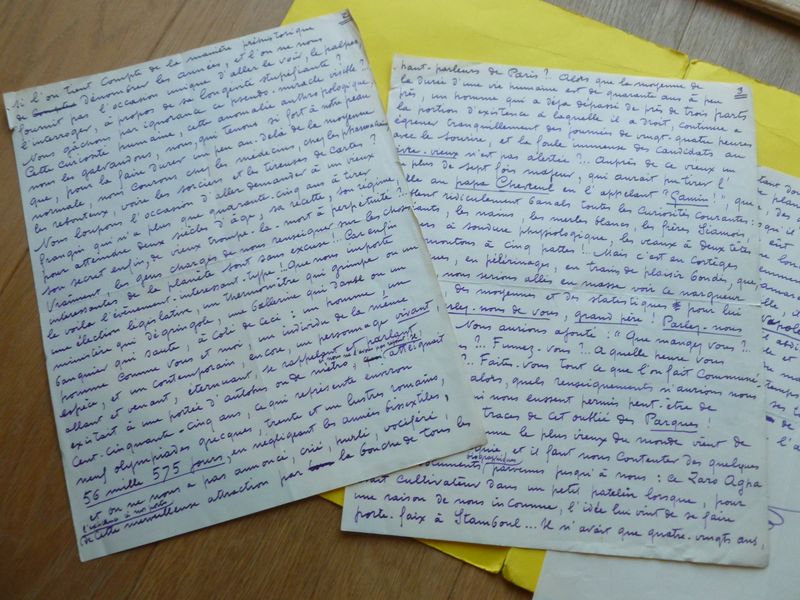 2
Si l'on tient compte de la manière préhistorique
de dénombrer les années, et l'on ne nous
fournit pas l'occasion unique d'aller le voir, le palper,
l'interroger, à propos de sa longévité stupéfiante?
Nous gâchons par ignorance ce pseudo-miracle visible?
Cette curiosité humaine, cette anomalie anthropologique,
nous la galvaudons, nous, qui tenons si fort à notre peau,
que, pour la faire durer un peu au delà de la moyenne
normale, nous courons chez les médecins, chez les pharmaciens,
les rebouteux, voire les sorciers et les tireuses de cartes
Nous loupons l'occasion d'aller demander à un vieux
frangin qui n'a plus que quarante-cinq ans à tirer
pour atteindre deux siècles d'âge, sa recette, son régime,
son secret enfin, de vieux trompe-la-mort à perpétuité?
Vraiment, les gens chargés de nous renseigner sur les choses
intéressantes de la planète sont sans excuse!! Car enfin
le voilà l'événement-intéressant-type! Que nous importe
une élection législative, un thermomètre qui grimpe ou un
ministère qui dégringole, une ballerine qui danse ou un
banquier qui saute, à côté de ceci: un homme, un
homme comme vous et moi, un individu de la même
espèce, et un contemporain, encore, un personnage vivant,
allant et venant, éternuant, se rappelant et parlant,
existait à une portée d'autobus ou de métro, et nous ne l'avons pas vu! Il atteignait
cent-cinquante-cinq ans, ce qui représente environ
neuf olympiades grecques, trente et un lustres romains,
56 mille 575 jours, en négligeant les années bissextiles,
et on ne nous a pas annoncé, crié, hurlé, vociféré,
cette merveilleuse attraction par la bouche de tous les
3
haut-parleurs de Paris? Alors que la moyenne de
la durée d'une vie humaine est de quarante ans à peu
près, un homme qui a déjà dépassé de près de trois parts
la portion d'existence à laquelle il a droit, continue à
égrener tranquillement des journées de vingt-quatre heures
avec le sourire, et la foule immense des candidats au
vieux n'est pas alertée?.. Auprès de ce vieux un
plus de sept fois majeur, qui aurait pu tirer l'
au papa Chevreul en l'appelant "Gamin!", que
ridiculement banals toutes les curiosités courantes:
les nains, les merles blancs, les frères Siamois
à soudure physiologique, les veaux à deux têtes
moutons à cinq pattes! Mais c'est en cortèges
en pèlerinage, en train de plaisir bondés, que
nous serions allés en masse voir ce narqueur
des moyennes et des statistiques pour lui
Parlez-nous de vous, grand père! Parlez-nous
Nous aurions ajouté: "Que mangez vous?..
?. Fumez-vous?.. A quelle heure vous
?.. Faites-vous tout ce que l'on fait communé
alors, quels renseignements n'aurions nous
qui nous eussent permis peut-être de
traces de cet oublié des Parques!
homme le plus vieux du monde vient de
et il faut nous contenter des quelques
documents biographiques parvenus jusqu'à nous: ce Zaro Agha
était cultivateur dans un petit patelin lorsque, pour
une raison de nous inconnue, l'idée lui vint de se faire
porte-faix à Stamboul... Il n'avait que quatre-vingts ans,